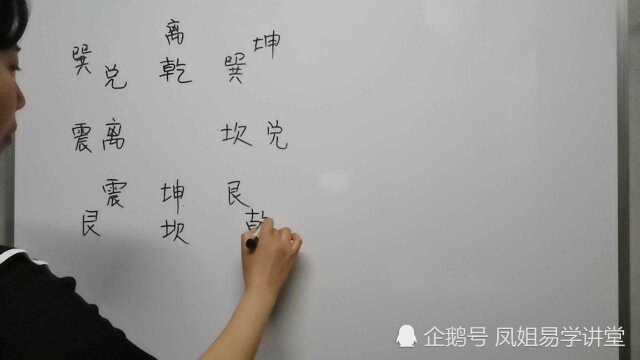 离
巽 兑 乾 巽 坤
震 离 坎 兑
震 坤 艮
艮 坎
企鹅号 凤姐易学讲堂